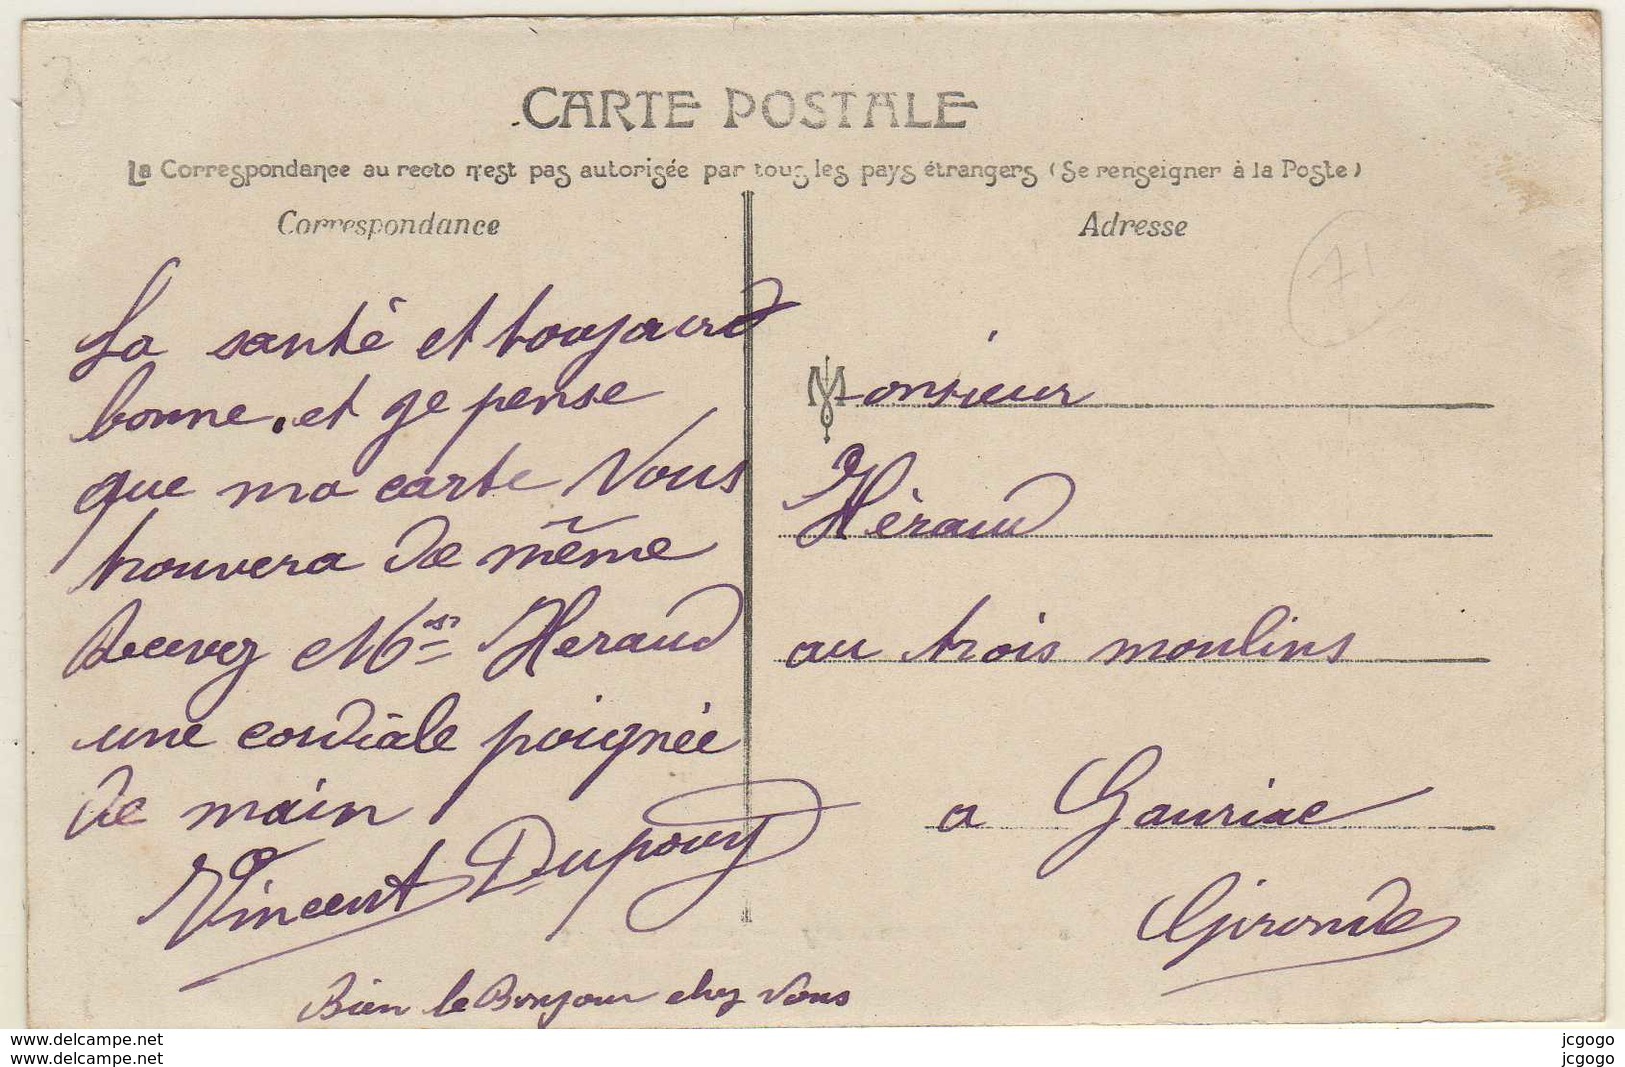 CARTE POSTALE
La Correspondance au recto n'est pas autorisée par tous les pays étrangers (Se renseigner à la Poste)
Correspondance
La santé et toujours
bonne. et je pense
que ma carte Vous
trouvera de même
Recevez Mr Heraud
une cordiale poignée
de main
Vincent Dupouy
Bien le Bonjour chez Vous
Adresse
71
Monsieur
Héraud
au trois moulins
a Gauriac
Gironde
www.delcampe.net
www.delcampe.net
jcgogo
jcgogo